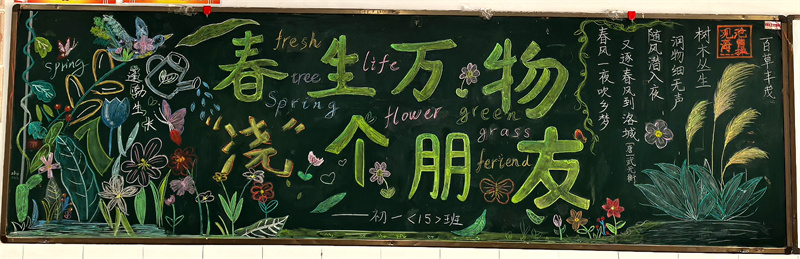 春生万物
“浇”个朋友
——初一<15>班
fresh
life
tree
Spring
flower
green
grass
feriend
spring
蓬勃生长
百草丰茂
树木丛生
润物细无声
随风潜入夜
又逐春风到洛城
春风一夜吹乡梦